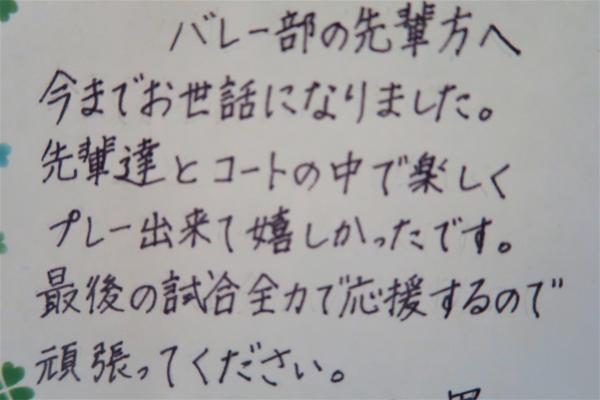 バレー部の先輩方へ
今までお世話になりました。
先輩達とコートの中で楽しく
プレー出来て嬉しかったです。
最後の試合全力で応援するので
頑張ってください。